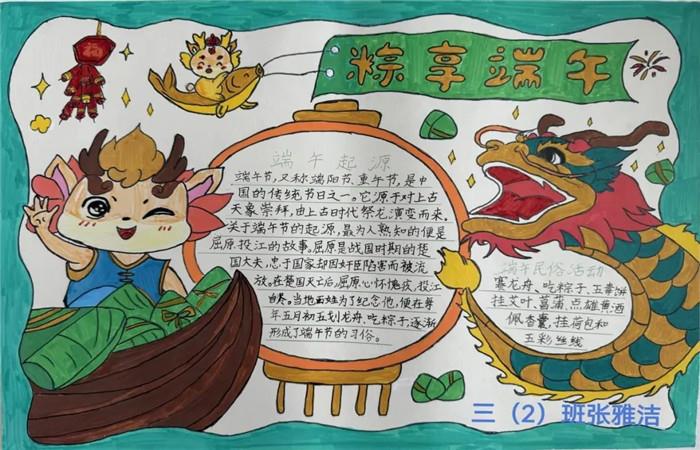 福
粽享端午
端午起源
端午节,又称端阳节、重午节,是中
国的传统节日之一。它源于对上古
天象崇拜,由上古时代祭龙演变而来.
关于端午节的起源,最为人熟知的便是
屈原投江的故事。屈原是战国时期的楚
国大夫,忠于国家却因奸臣陷害而被流
放。在楚国灭亡后,屈原心怀愧疚,投江
自尽。当地百姓为了纪念他,便在每
年五月初五划龙舟、吃粽子,逐渐
形成了端午节的习俗。
端午民俗活动
赛龙舟、吃粽子、五毒饼
挂艾叶、菖蒲、点雄黄酒
佩香囊、挂荷包和
五彩丝线
三（2）班张雅洁